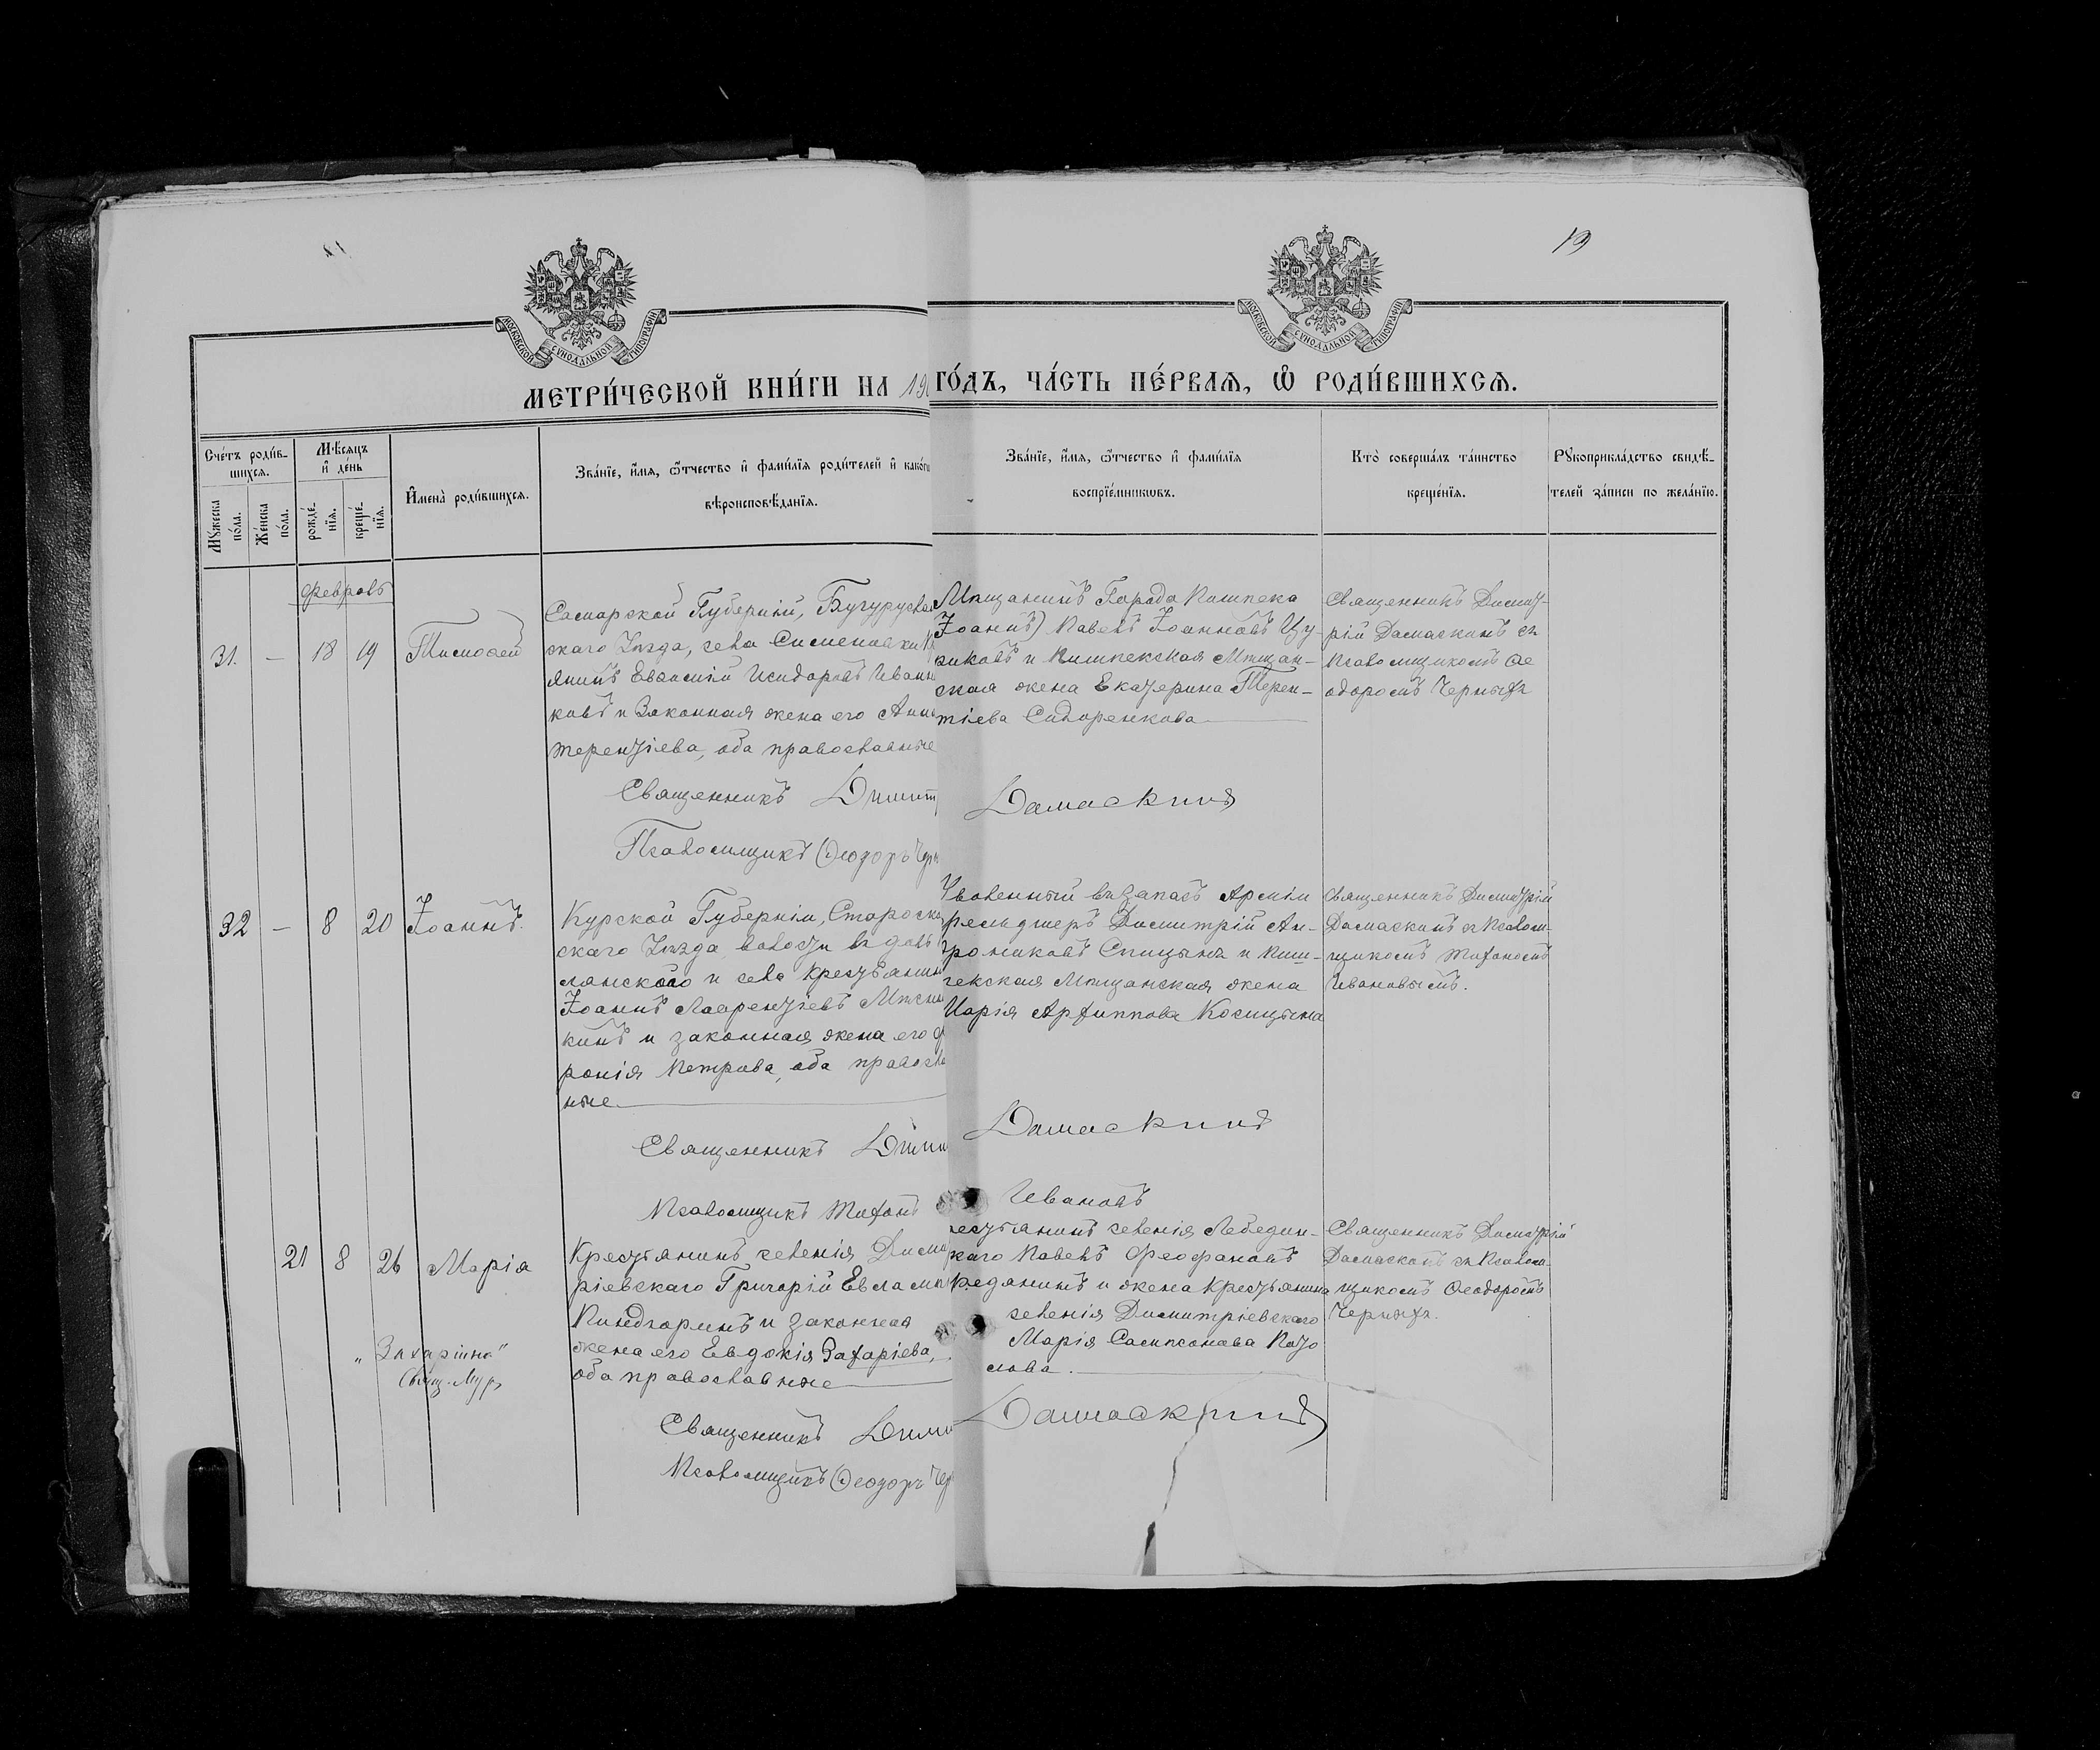 19
МОСКОВСКОЙ СѴНОДАЛЬНОЙ ТИПОГРАФІИ
МОСКОВСКОЙ СѴНОДАЛЬНОЙ ТИПОГРАФІИ
МЕТРИ́ЧЕСКОЙ КНИ́ГИ НА 19
ГО́ДЪ, ЧА́СТЬ ПЕ́РВАЯ, Ѡ҆ РОДИ́ВШИХСЯ.
Сче́тъ роди́в-
шихся.
Мѣ́сяцъ
и҆ де́нь
Мꙋ́жеска
по́ла.
Же́нска
по́ла.
рожде́-
нїя.
креще́-
нїя.
И҆мена̀ роди́вшихся.
Зва́нїе, и҆́мя, ѻ҆́тчество и҆ фами́лїя роди́телей и҆ како́гѡ
вѣроисповѣ́данїя.
Зва́нїе, и҆́мя, ѻ҆́тчество и҆ фами́лїя
воспрїе́мниковъ.
Кто̀ соверша́лъ та́инство
креще́нїя.
Рꙋкоприкла́дство свидѣ́-
телей за́писи по жела́нїю.
Февраль
31. — 18 19 Тимофей
Самарской Губерніи, Бугуруслан
скаго Уѣзда, села Сименовки
янинъ Евѳимій Исидоровъ Иван
ковъ и Законная жена его Анна
терентіева, оба православные
Священникъ Димит
Псаломщикъ Ѳеодоръ Чер
Мѣщанинъ Города Пишпека
Іоаннъ) Павелъ Іоанновъ Цу-
риковъ и Пишпекская Мѣщан-
ская жена Екатерина Терен-
тіева Сидоренкова
Дамаскинъ
Священникъ Димит-
рій Дамаскинъ съ
Псаломщикомъ Ѳе
одоромъ Черныхъ
32 — 8 20 Іоаннъ.
Курской Губерніи, Староско
скаго Уѣзда волости
лянского и села Крестьянин
Іоаннъ Лаврентіевъ
кинъ и законная жена его
ронія Петрова, оба правосла
ные
Священникъ Дими
Псаломщикъ Тихонъ
Уволенный въ запасъ Арміи
фельдшеръ Димитрій Ан-
дрониковъ Спицынъ и Пиш-
пекская Мѣщанская жена
Марія Архиппова Косицына
Дамаскинъ
Ивановъ
Священникъ Димитрій
Дамаскинъ съ Псалом-
щикомъ Тихономъ
Ивановымъ.
21 8 26 Марія
„Захаріина“
Крестьянинъ селенія Дими
ріевскаго Григорій Евлам
Киндяринъ и законная
жена его Евдокія Захаріева,
оба православные
Священникъ Дими
Псаломщикъ Ѳеодоръ Чер
рестьянинъ селенія Лебедин-
скаго Павелъ Феофановъ
и жена Крестьянина
селенія Димитріевскаго
Марія Сампсонова
лова.
Дамаскинъ
Священникъ Димитрій
Дамаскинъ съ Псалом-
щикомъ Ѳеодоромъ
Черныхъ.